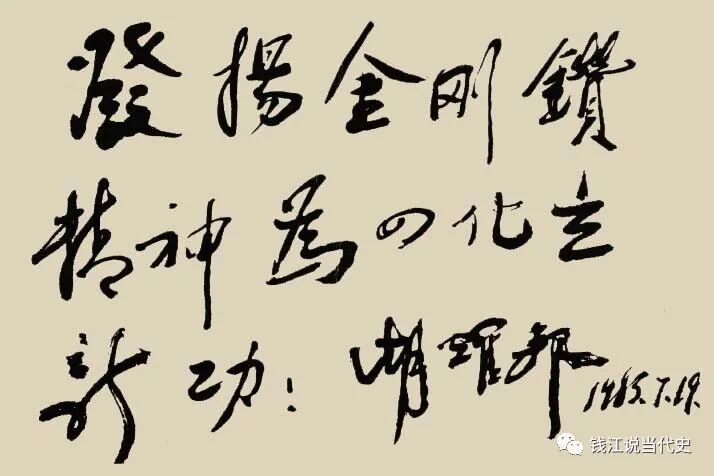 發揚金刚鑽
精神為四化立
新功！胡耀邦
1985.7.19.
钱江说当代史